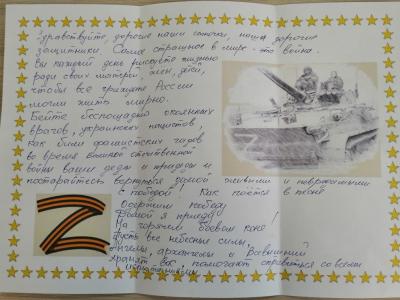 Здравствуйте, дорогие наши сыночки, наши дорогие
защитники. Самое страшное в мире - это война.
Вы каждый день рискуете жизнью
ради своих матерей, жен, детей,
чтобы все граждане России
могли жить мирно.
Бейте беспощадно окаянных
врагов, украинских нацистов,
как били фашистских гадов
во время великой отечественной
войны ваши деды и прадеды и
постарайтесь вернуться домой живыми и невредимыми
с победой! Как поётся в песне
Одержим победу
Домой я приеду
На горячем боевом коне!
Пусть все небесные силы,
Ангелы, архангелы и Всевышний
хранят вас, помогают справиться со всеми